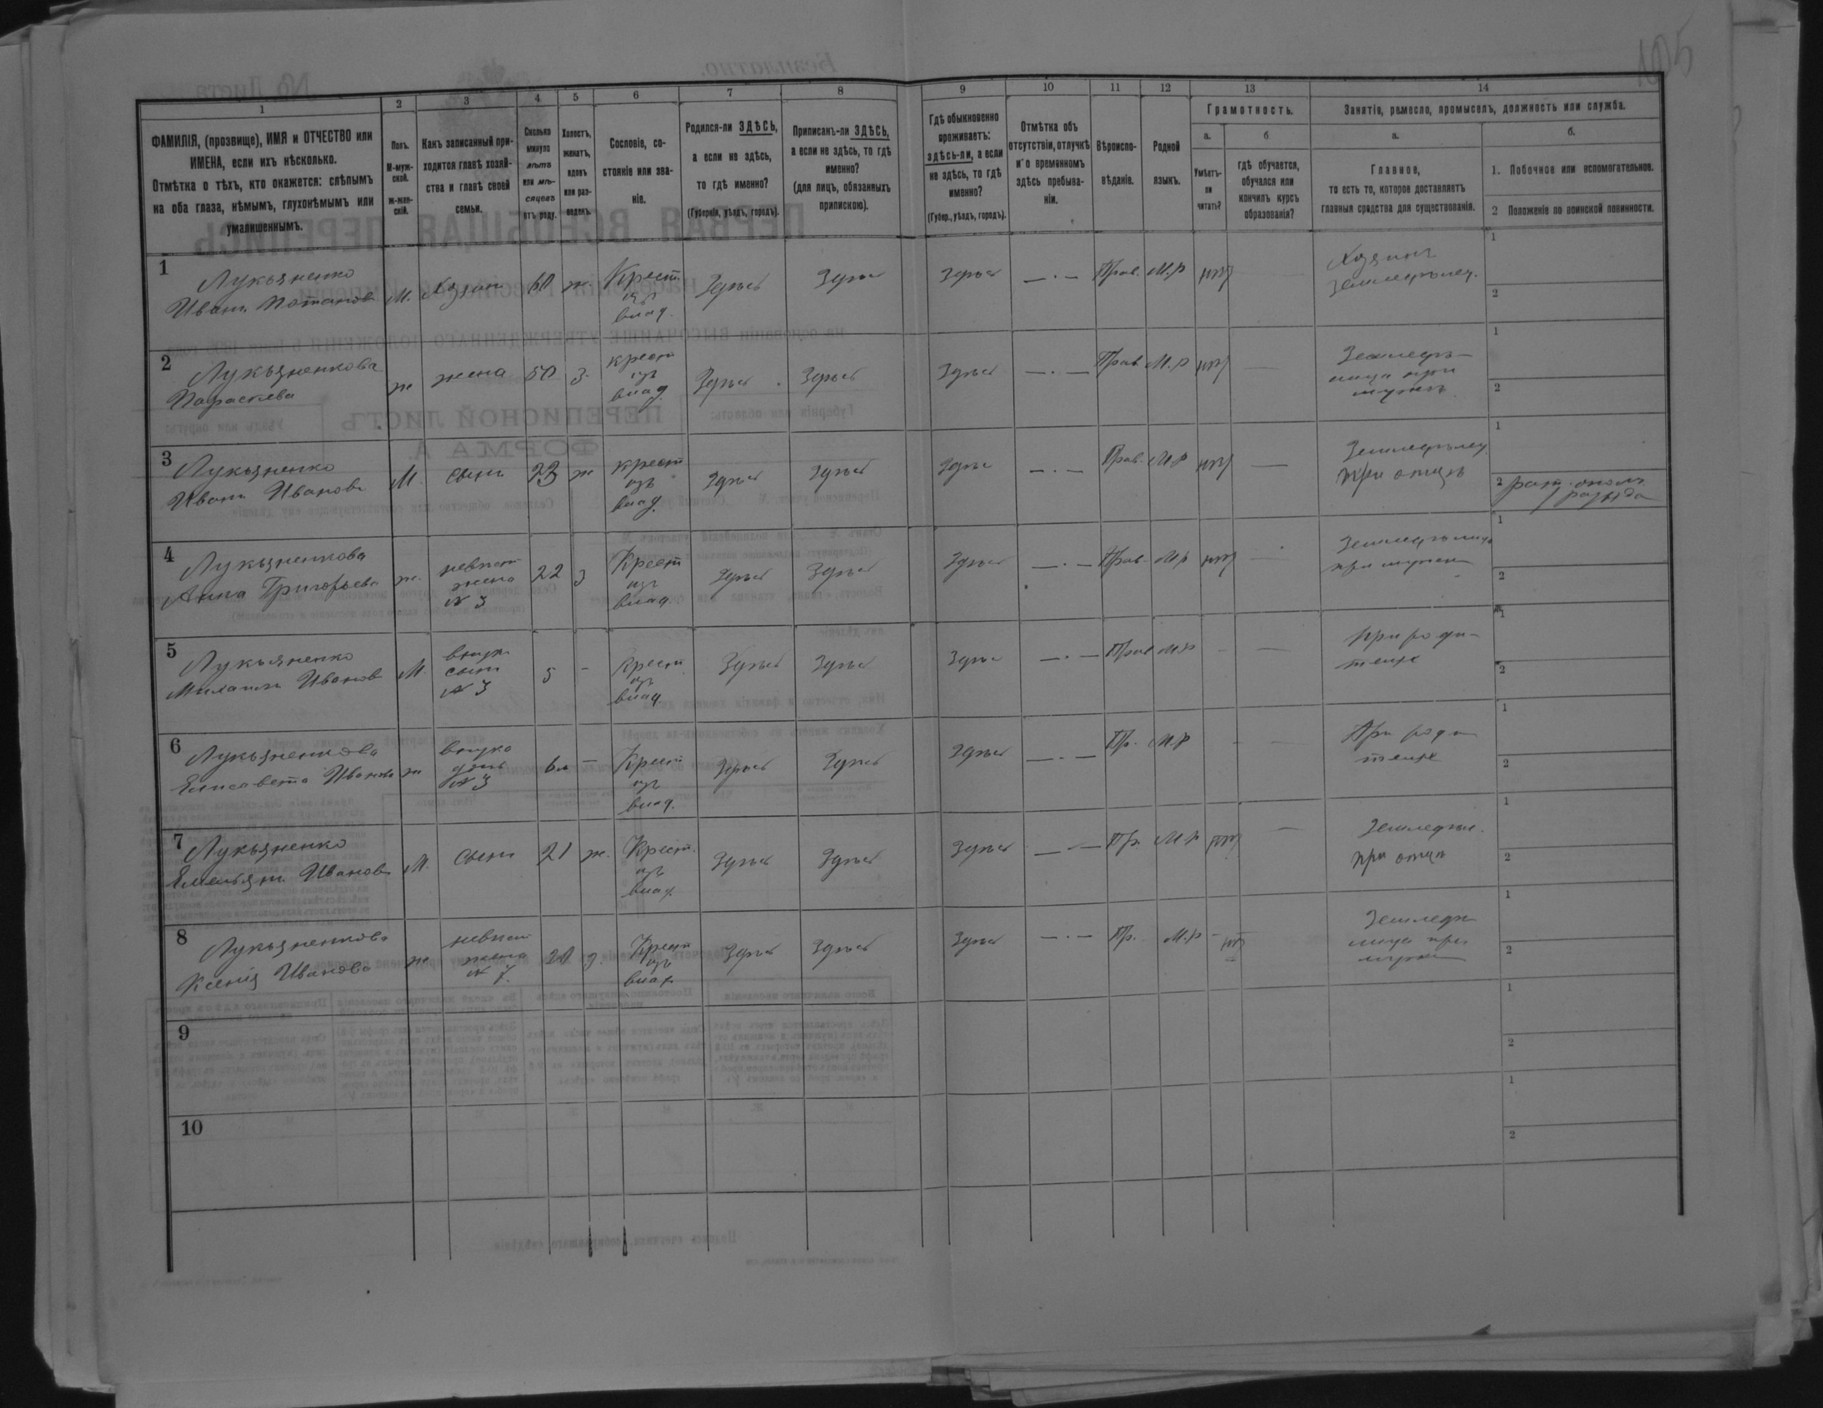 105
1 2 3 4 5 6 7 8 9 10 11 12 13 14
ФАМИЛІЯ, (прозвище), ИМЯ и ОТЧЕСТВО или
ИМЕНА, если ихъ нѣсколько.
Отмѣтка о тѣхъ, кто окажется: слѣпымъ
на оба глаза, нѣмымъ, глухонѣмымъ или
умалишеннымъ.
Полъ.
М-муж-
ской.
ж-жен-
скій.
Какъ записанный при-
ходится главѣ хозяй-
ства и главѣ своей
семьи.
Сколько
минуло
лѣтъ
или мѣ-
сяцевъ
отъ роду.
Холостъ,
женатъ,
вдовъ
или раз-
веденъ.
Сословіе, со-
стояніе или зва-
ніе.
Родился-ли ЗДѢСЬ,
а если не здѣсь,
то гдѣ именно?
(Губернія, уѣздъ, городъ).
Приписанъ-ли ЗДѢСЬ,
а если не здѣсь, то гдѣ
именно?
(для лицъ, обязанныхъ
припискою).
Гдѣ обыкновенно
проживаетъ:
здѣсь-ли, а если
не здѣсь, то гдѣ
именно?
(Губер., уѣздъ, городъ).
Отмѣтка объ
отсутствіи, отлучкѣ
и о временномъ
здѣсь пребыва-
ніи.
Вѣроиспо-
вѣданіе.
Родной
языкъ.
Грамотность.
а. б.
Умѣетъ-
ли
читать?
гдѣ обучается,
обучался или
кончилъ курсъ
образованія?
Занятіе, ремесло, промыселъ, должность или служба.
а. б.
Главное,
то есть то, которое доставляетъ
главныя средства для существованія.
1. Побочное или вспомогательное.
2 Положеніе по воинской повинности.
1 Лукьяненко
Иванъ Потаповъ М. Хозяинъ 60 ж Крест. изъ влад. Здѣсь Здѣсь Здѣсь — · — Прав. М.р нѣтъ — Хозяинъ земледѣлец. 1 2
2 Лукьяненкова
Параскева ж жена 50 з. крест изъ влад. Здѣсь Здѣсь Здѣсь — · — Прав М.р нѣтъ — Земледѣ-лица при мужѣ. 1 2
3 Лукьяненко
Иванъ Ивановъ М. сынъ 23 ж крест изъ влад. Здѣсь Здѣсь Здѣсь — · — Прав. М.р нѣтъ — Земледѣлец при отцѣ 1 2 рат. опол. 1 разряда
4 Лукьяненкова
Анна Григорьева ж. невѣст жена № 3 22 з Крест изъ влад. Здѣсь Здѣсь Здѣсь — · — Прав. М.р нѣтъ — Земледѣлица при мужѣ 1 2
5 Лукьяненко
Ивановъ М. внукъ сынъ № 3 5 – Крест изъ влад. Здѣсь Здѣсь Здѣсь — · — Прав М.р – — При роди-теляхъ 1 2
6 Лукьяненкова
Елисавета Иванова ж внука дочь № 3 6м – Крест изъ влад. Здѣсь Здѣсь Здѣсь — · — Пр. М.р – – При роди-теляхъ 1 2
7 Лукьяненко
Емельянъ Ивановъ М. сынъ 21 ж. Крест. изъ влад. Здѣсь Здѣсь Здѣсь — · — Пр. М.р нѣтъ — Земледѣл. при отцѣ 1 2
8 Лукьяненкова
Ксенія Иванова ж невѣст жена № 7. 20 з. Крест изъ влад. Здѣсь Здѣсь Здѣсь — · — Пр. М.р – нѣтъ Земледѣ-лица при мужѣ 1 2
9 1 2
10 1 2